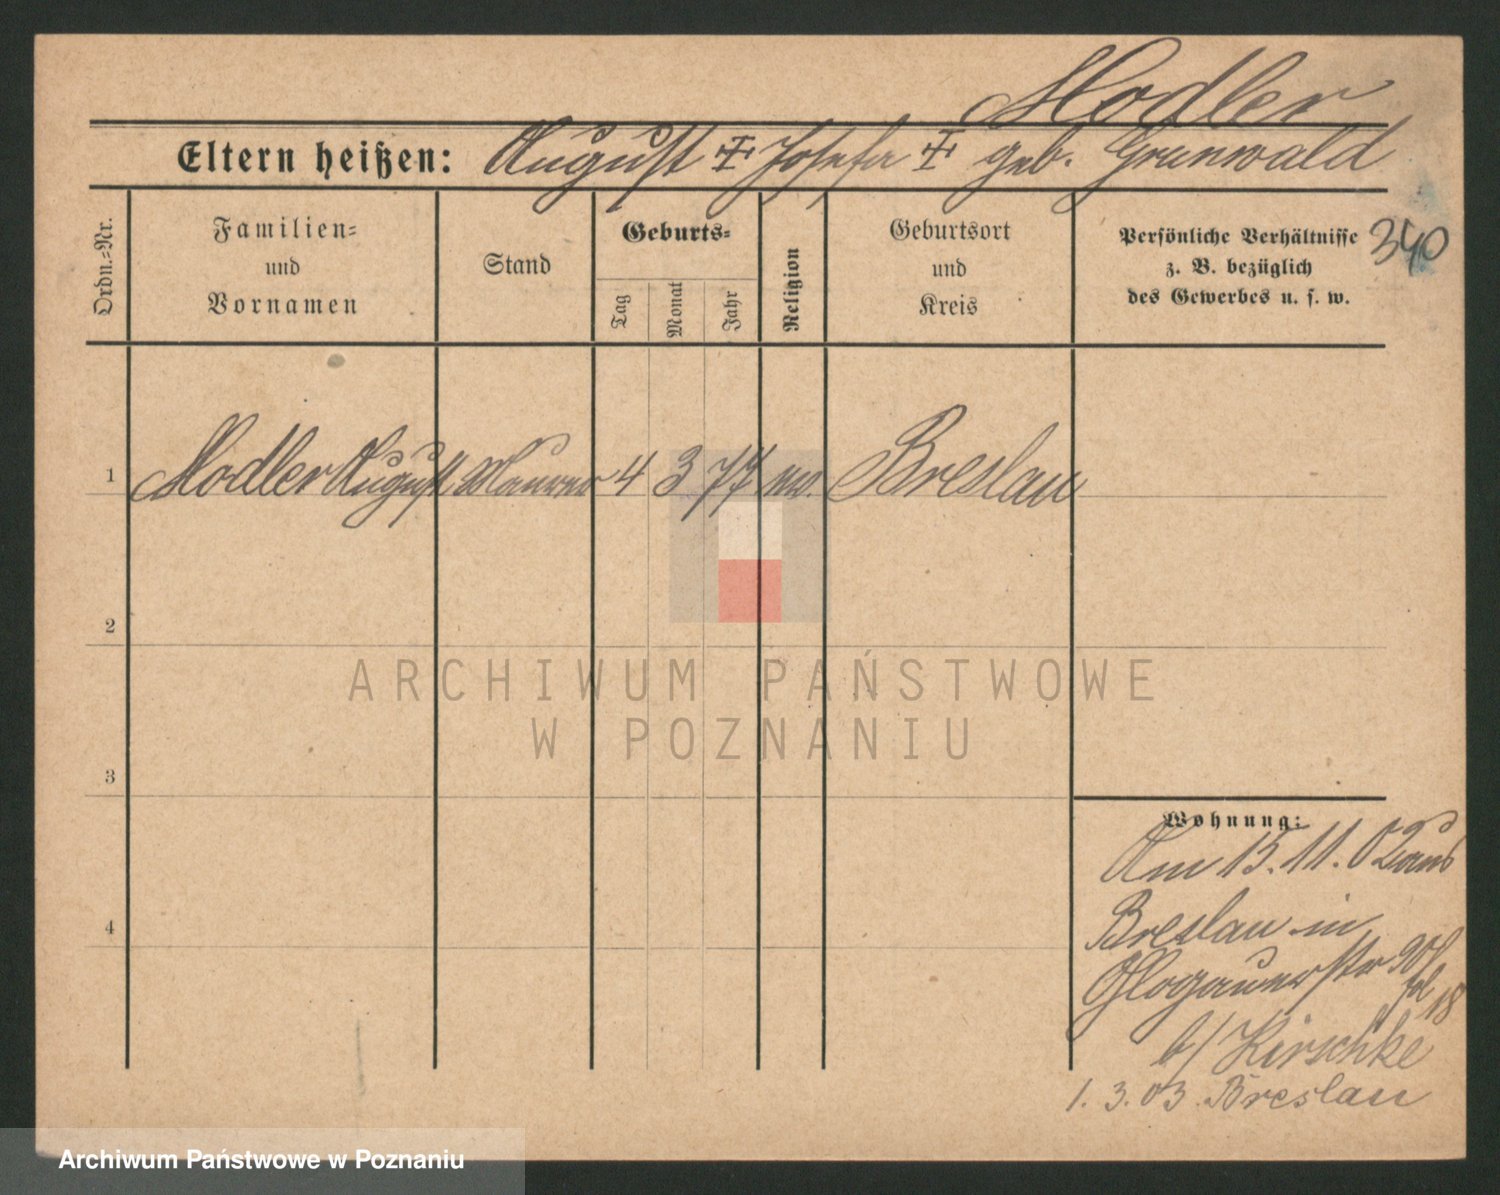 Modler
Eltern heißen: August + Josefa + geb. Grunwald
Ordn.=Nr.
Familien=
und
Vornamen
Stand
Geburts=
Tag
Monat
Jahr
Religion
Geburtsort
und
Kreis
Persönliche Verhältnisse
z. B. bezüglich
des Gewerbes u. s. w.
340
1 Modler August Maurer 4 3 77 Breslau
2
3
4
Wohnung:
Am 15.11.02 aus
Breslau in
Glogauerstr 90
18
b/ Kirschke
1.3.03. Breslau
ARCHIWUM PAŃSTWOWE
W POZNANIU
Archiwum Państwowe w Poznaniu